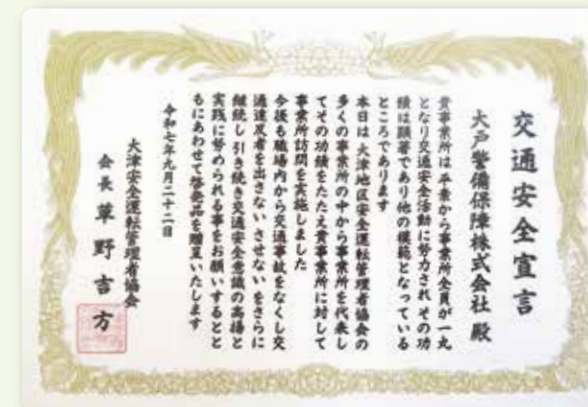 交通安全宣言
大戸警備保障株式会社 殿
貴事業所は平素から事業所全員が一丸
となり交通安全活動に努力され その功
績は顕著であり他の模範となっている
ところであります
本日は 大津地区安全運転管理者協会の
多くの事業所の中から事業所を代表し
てその功績をたたえ貴事業所に対して
事業所訪問を実施しました
今後も職場内から交通事故をなくし交
通違反者を出さない させない をさらに
継続し引き続き交通安全意識の高揚と
実践に努められる事をお願いするとと
もにあわせて啓発品を贈呈いたします
令和七年九月二十二日
大津安全運転管理者協会
会長 草野吉方